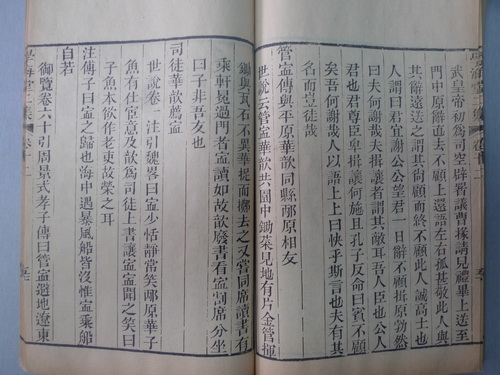 武皇帝初爲司空辟署議曹掾請見禮畢上送至
門中原辭直去不顧上還語左右孤甚敬此人與
其辭遠送之謂其尙顧而終不顧此人誠高士也
人謂君曰君宜謝公公望君一日辭不顧揖原勃然
曰吾何謝哉夫揖讓者謂其敵耳吾人臣也公人
君也君尊臣卑揖讓何施且孔子反命曰賓不顧
矣吾何謝哉人以語上上曰快乎斯言也夫有
名而豈徒哉
管寧傳與平原華歆同縣邴原相友
世說云管寧華歆共園中鋤菜見地有片金管揮
鋤與瓦石不異華捉而擲去之又嘗同席讀書有
乘軒冕過門者寧讀如故歆廢書看寧割席分坐
曰子非吾友也
司徒華歆薦寧
世說卷一注引魏畧曰寧少恬靜常笑邴原華子
魚有仕宦意及歆爲司徒上書讓寧寧聞之笑曰
子魚本欲作老吏故榮之耳
注傅子曰寧之歸也海中遇暴風船皆沒惟寧乘船
自若
御覽卷六十引周景式孝子傳曰管寧避地遼東